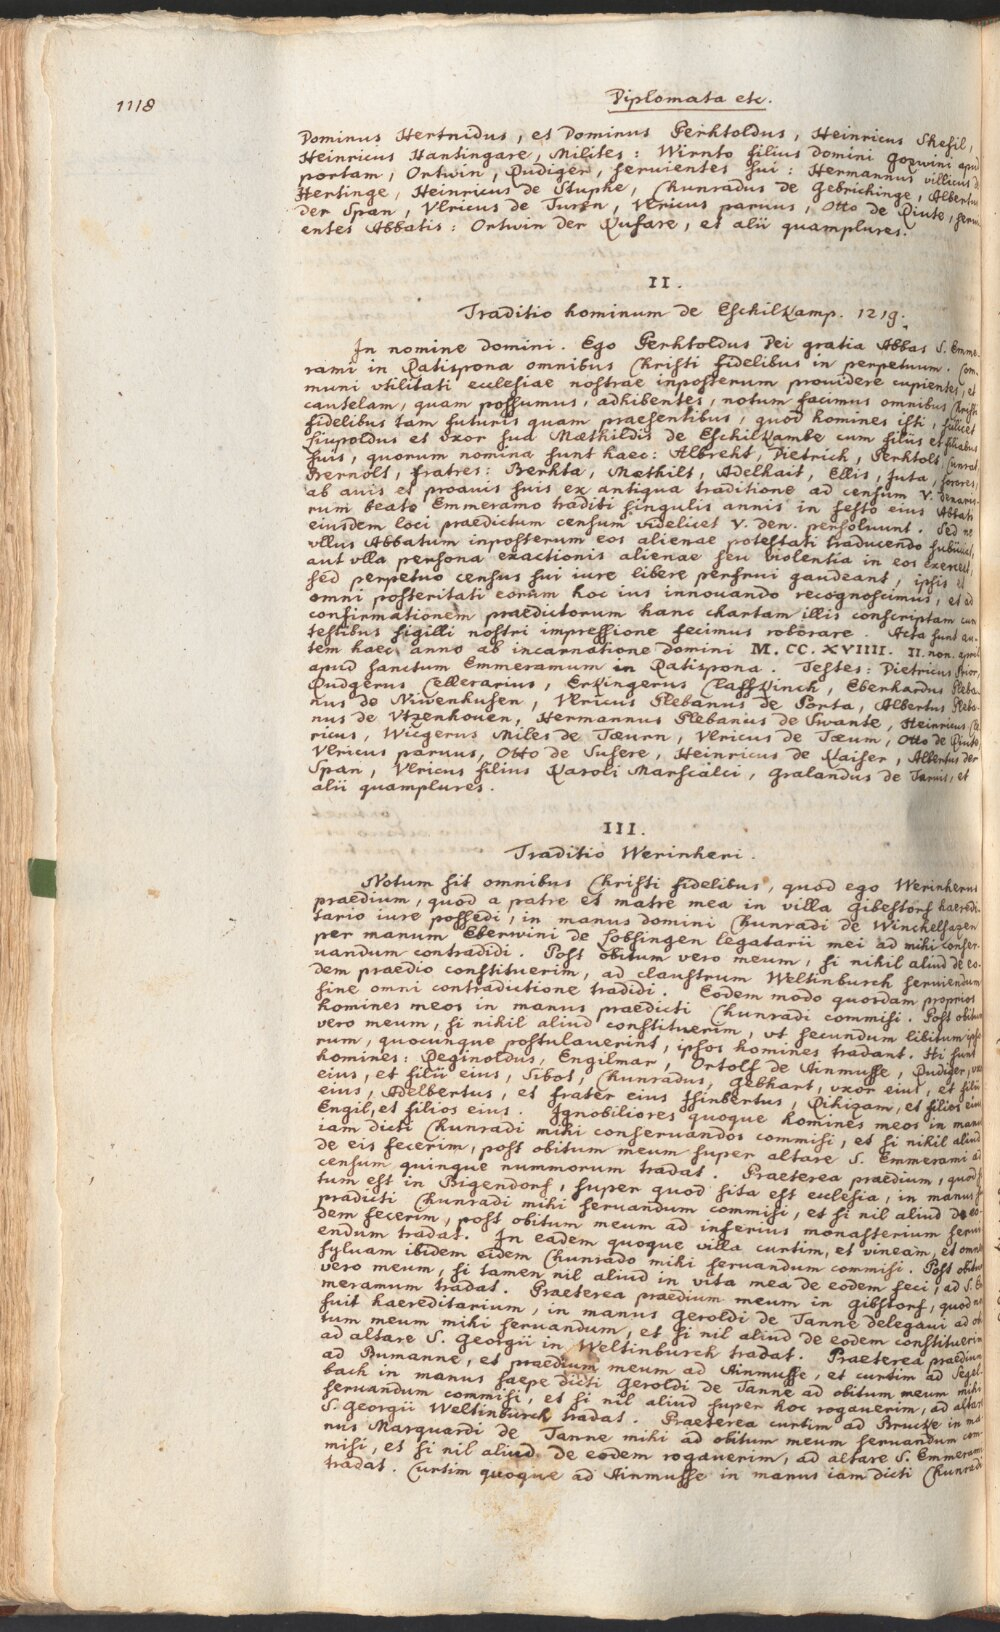 1118
Diplomata etc.
Dominus Hertnidus, et Dominus Perhtoldus, Heinricus Skesil,
Heinricus Hantingare, Milites: Wirnto filius domini Gozwini apud
portam, Ortwin, Rudiger, seruientes sui: Hermannus villicus de
Hertinge, Heinricus de Stuphe, Chunradus de Gebrichinge, Albertus
der Span, Vlricus de Turen, Vlricus paruus, Otto de Riute, serui-
entes Abbatis: Ortwin der Rufare, et alii quamplures.
II.
Traditio hominum de Eschilkamp. 1219.
In nomine Domini. Ego Perhtoldus Dei gratia Abbas S. Emme-
rami in Ratispona omnibus Christi fidelibus in perpetuum. Com-
muni vtilitati ecclesiae nostrae inposterum prouidere cupientes, et
cautelam, quam possumus, adhibentes, notum facimus omnibus Christi
fidelibus tam futuris quam praesentibus, quod homines isti, scilicet
Liupoldus et vxor sua Mæthildis de Eschilkambe cum filiis et filiabus
suis, quorum nomina sunt haec: Albreht, Dietrich, Perhtolt, Cunrat
Bernolt, fratres: Berhta, Mæthilt, Adelhait, Ellis, Juta, sorores,
ab auis et proauis suis ex antiqua traditione ad censum V. denario-
rum beato Emmeramo traditi singulis annis in festo eius Abbati
eiusdem loci praedictum censum videlicet V. den. persoluunt. Sed ne
vllus Abbatum inposterum eos alienae potestati traducendo subiiciat,
aut vlla persona exactionis alienae seu violentia in eos exerceat,
sed perpetuo census sui iure libere perfrui gaudeant, ipsis et
omni posteritati eorum hoc ius innouando recognoscimus, et ad
confirmationem praedictorum hanc chartam illis conscriptam cum
testibus sigilli nostri impressione fecimus roborare. Acta sunt au-
tem haec anno ab incarnatione domini M. CC. XVIIII. II. non. april
apud sanctum Emmeramum in Ratispona. Testes: Dietricus Prior,
Rudgerus Cellerarius, Erkingerus Chasskinch, Eberhardus Pleba-
nus de Niwenhusen, Vlricus Plebanus de Porta, Albertus Pleba-
nus de Vtzenhouen, Hermannus Plebanus de Swante, Heinricus Cle-
ricus, Wicgerus Miles de Tæurn, Vlricus de Tæum, Otto de Riute,
Vlricus paruus, Otto de Susere, Heinricus de Kaiser, Albertus der
Span, Vlricus filius Karoli Marscalci, Gralandus de Turnis, et
alii quamplures.
III.
Traditio Werinheri.
Notum sit omnibus Christi fidelibus, quod ego Werinherus
praedium, quod a patre et matre mea in villa Gibestorf haeredi-
tario iure possedi, in manus domini Chunradi de Winchelsazen
per manum Eberwini de Lobsingen legatarii mei ad mihi conser-
uandum contradidi. Post obitum vero meum, si nihil aliud de eo-
dem praedio constituerim, ad claustrum Weltinburch seruiendum
sine omni contradictione tradidi. Eodem modo quosdam proprios
homines meos in manus praedicti Chunradi commisi. Post obitum
vero meum, si nikil aliud constituerim, vt secundum libitum ipso-
rum, quocunque postulauerint, ipsos homines tradant. Hi sunt
homines: Reginoldus, Engilmar, Ortolf de Ainmusse, Rudiger, vxor
eius, et filii eius, Sibot, Chunradus, Gebhart, vxor eius, et filii
eius, Adelbertus, et frater eius Isinbertus, Rihizam, et filios eius
Engil, et filios eius. Ignobiliores quoque homines meos in manus
iam dicti Chunradi mihi conseruandos commisi, et si nikil aliud
de eis fecerim, post obitum meum super altare S. Emmerami ad
censum quinque nummorum tradat. Praeterea praedium, quod
tum est in Bigendorf, super quod sita est ecclesia, in manus
pradicti Chunradi mihi seruandum commisi, et si nil aliud de eo-
dem fecerim, post obitum meum ad inferius monasterium serui-
endum tradat. In eadem quoque villa curtim, et vineam, et omnem
syluam ibidem eidem Chunrado mihi seruandum commisi. Post obitum
vero meum, si tamen nil aliud in vita mea de eodem feci, ad S. Em-
meramum tradat. Praeterea praedium meum in Gibstorf, quod
fuit haereditarium, in manus Geroldi de Tanne delegaui ad ob-
tum meum mihi seruandum, et si nil aliud de eodem constituerim
ad altare S. Georgii in Weltinburch tradat. Praeterea praedium
ad Bumanne, et praedium meum ad Ainmusse, et curtim ad Segel-
bach in manus saepe dicti Geroldi de Tanne ad obitum meum mihi
seruandum commisi, et si nil aliud super hoc rogauerim, ad altare
S. Georgii Weltinburch tradat. Praeterea curtim ad Brucke in ma-
nus Marquardi de Tanne mihi ad obitum meum seruandum com-
misi, et si nil aliud de eodem rogauerim, ad altare S. Emmerami
tradat. Curtim quoque ad Ainmusse in manus iam dicti Chunradi